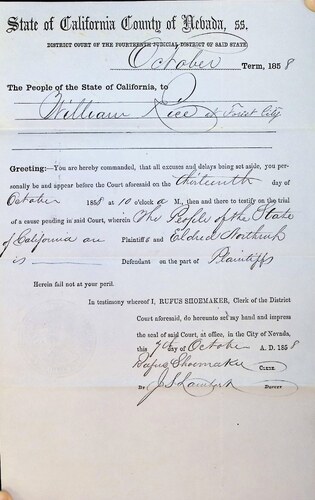 State of California County of Nevada, ss.
DISTRICT COURT OF THE FOURTEENTH JUDICIAL DISTRICT OF SAID STATE
October Term, 1858
The People of the State of California, to
William Rice of Forest City
Greeting:—You are hereby commanded, that all excuses and delays being set aside, you
personally be and appear before the Court aforesaid on the thirteenth day of
October 1858 at 10 o'clock a M., then and there to testify on the trial
of a cause pending in said Court, wherein The People of the State
of California are Plaintiffs and Eldred Northrup
is Defendant on the part of Plaintiffs
Herein fail not at your peril.
In testimony whereof I, RUFUS SHOEMAKER, Clerk of the District
Court aforesaid, do hereunto set my hand and impress
the seal of said Court, at office, in the City of Nevada,
this 9th day of October A. D. 1858
Rufus Shoemaker CLERK
By J. S. Lambert DEPUTY